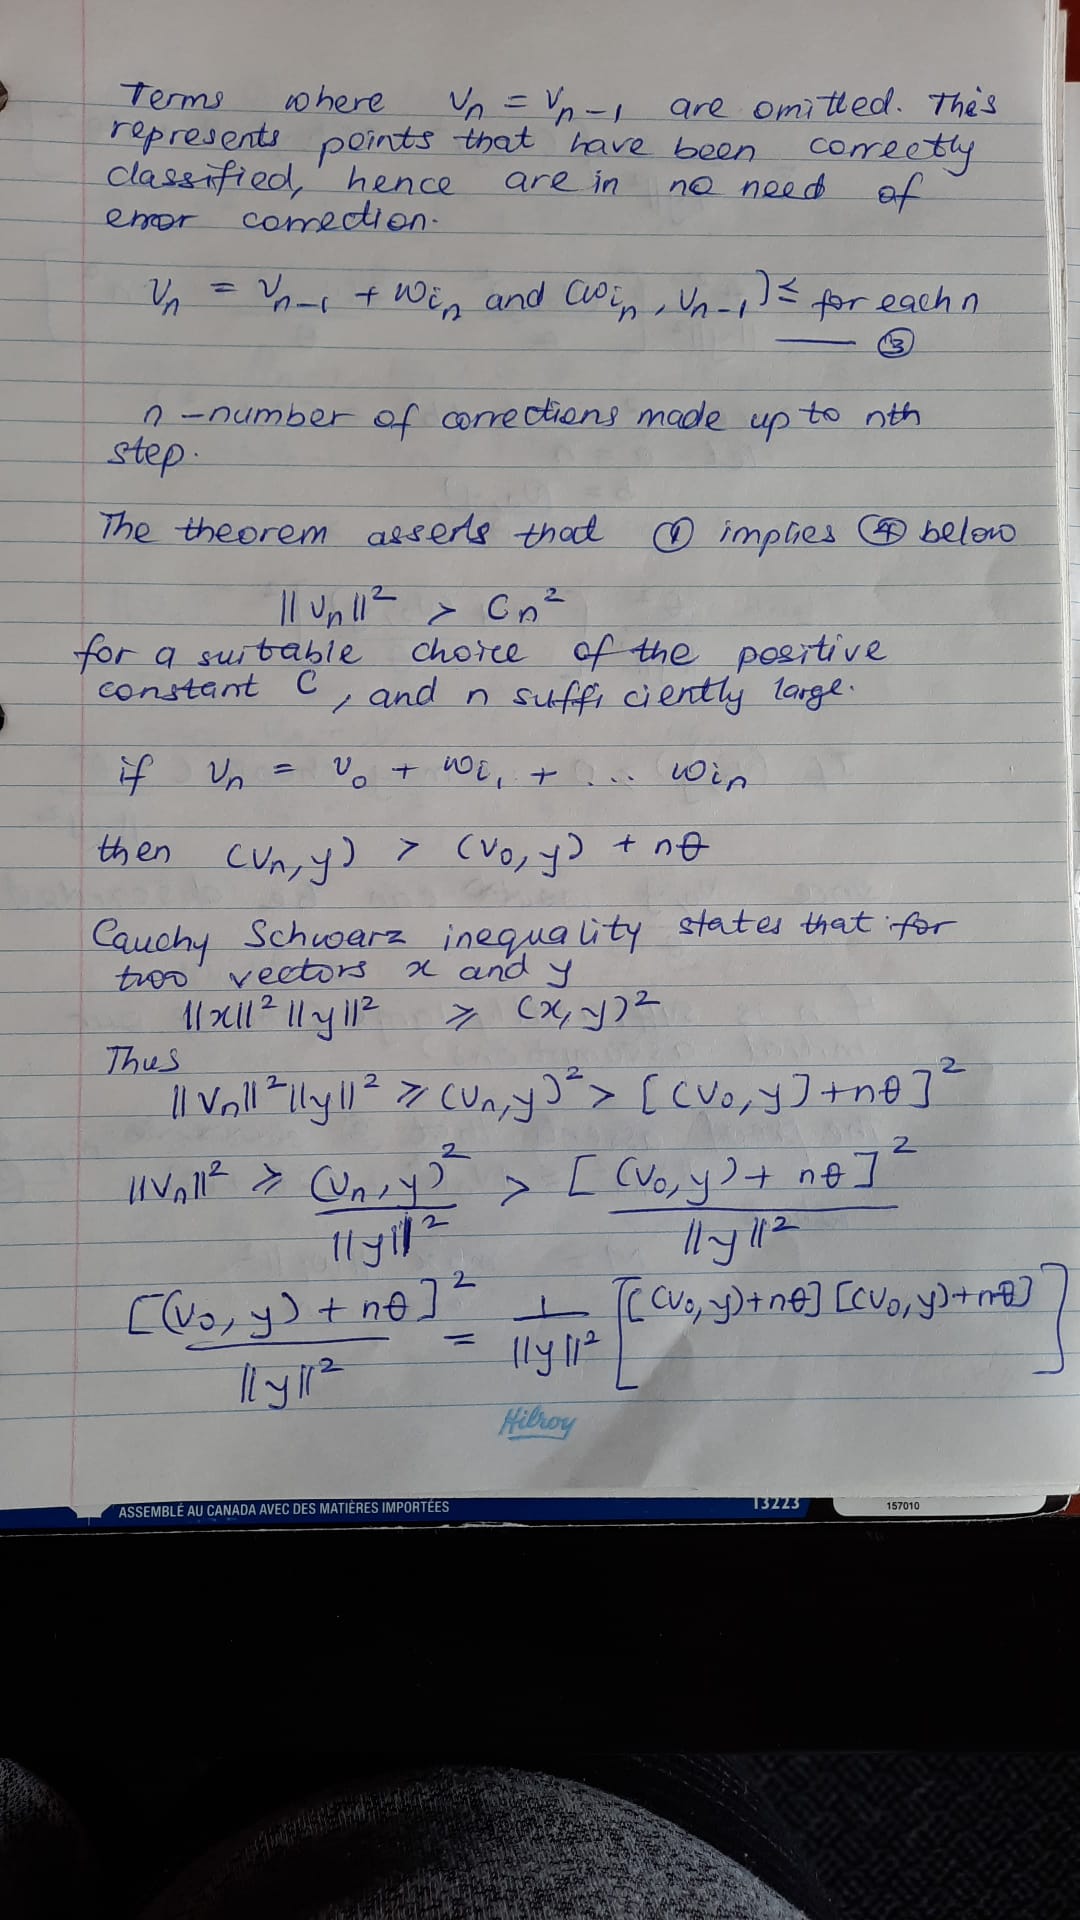 Terms where vₙ = vₙ₋₁ are omitted. This
represents points that have been correctly
classified, hence are in no need of
error correction.
vₙ = vₙ₋₁ + wiₙ and (wiₙ, vₙ₋₁) ≤ for each n
—— ③
n - number of corrections made up to nth
step.
The theorem asserts that ① implies ④ below
||vₙ||² > Cn²
for a suitable choice of the positive
constant C, and n sufficiently large.
if vₙ = v₀ + wi₁ + ... wiₙ
then (vₙ, y) > (v₀, y) + nθ
Cauchy Schwarz inequality states that for
two vectors x and y
||x||² ||y||² ⩾ (x, y)²
Thus
||vₙ||² ||y||² ⩾ (vₙ, y)² > [(v₀, y) + nθ]²
||vₙ||² ⩾ (vₙ, y)² / ||y||² > [(v₀, y) + nθ]² / ||y||²
[(v₀, y) + nθ]² / ||y||² = 1 / ||y||² [[(v₀, y) + nθ] [(v₀, y) + nθ]]
Hilroy
ASSEMBLÉ AU CANADA AVEC DES MATIÈRES IMPORTÉES 13223 157010